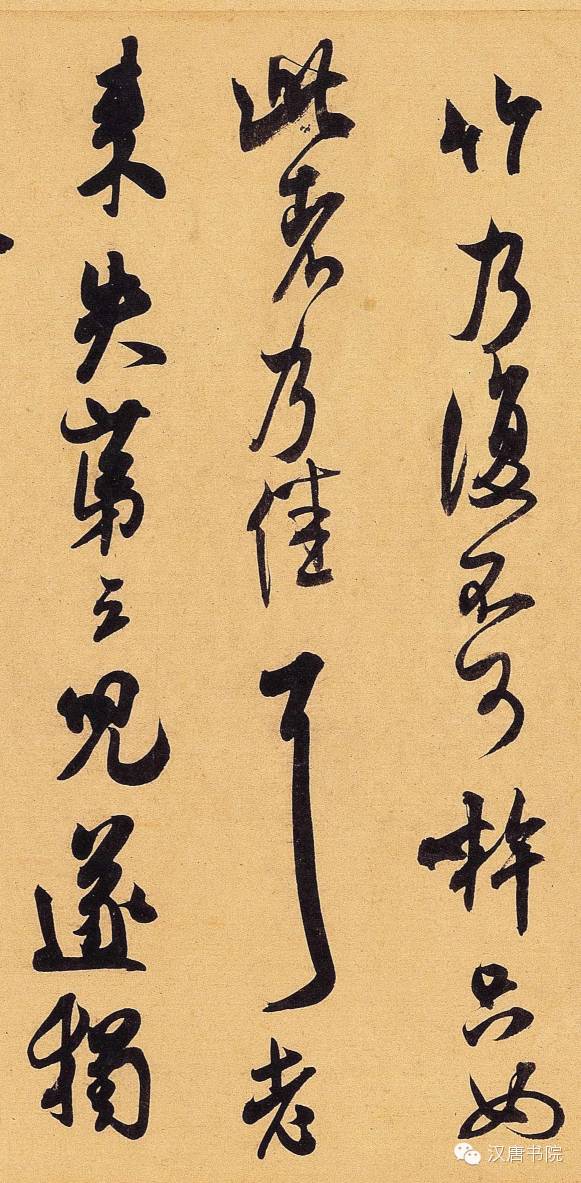 竹乃復不可只如
此者乃佳耳老
来失第三兒遂獨
汉唐书院